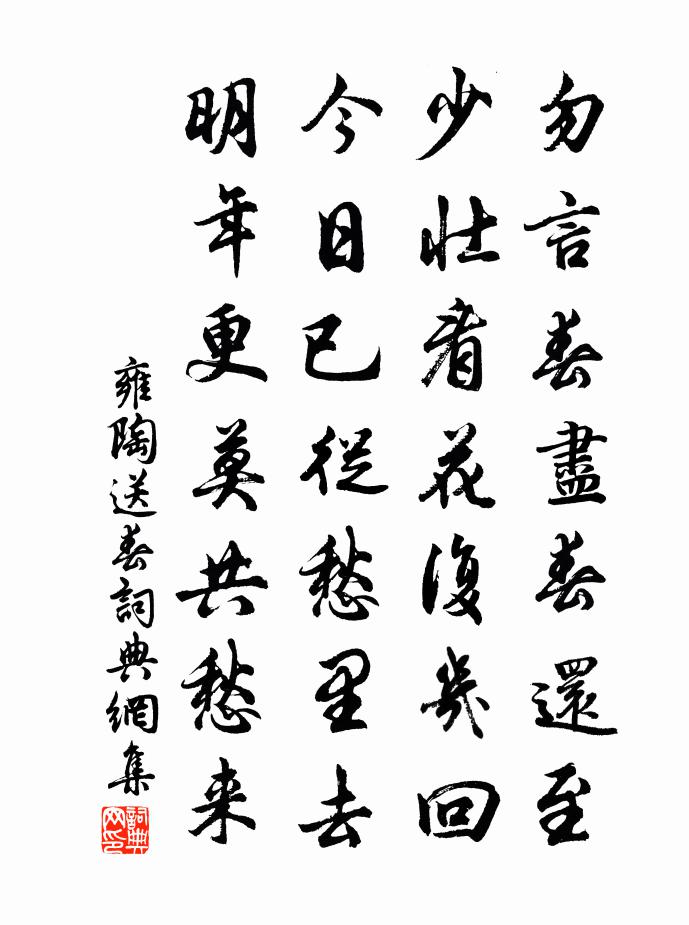 勿言春盡春還至
少壯看花復幾回
今日已從愁里去
明年更莫共愁来
雍陶送春詞典網集
詞典网印